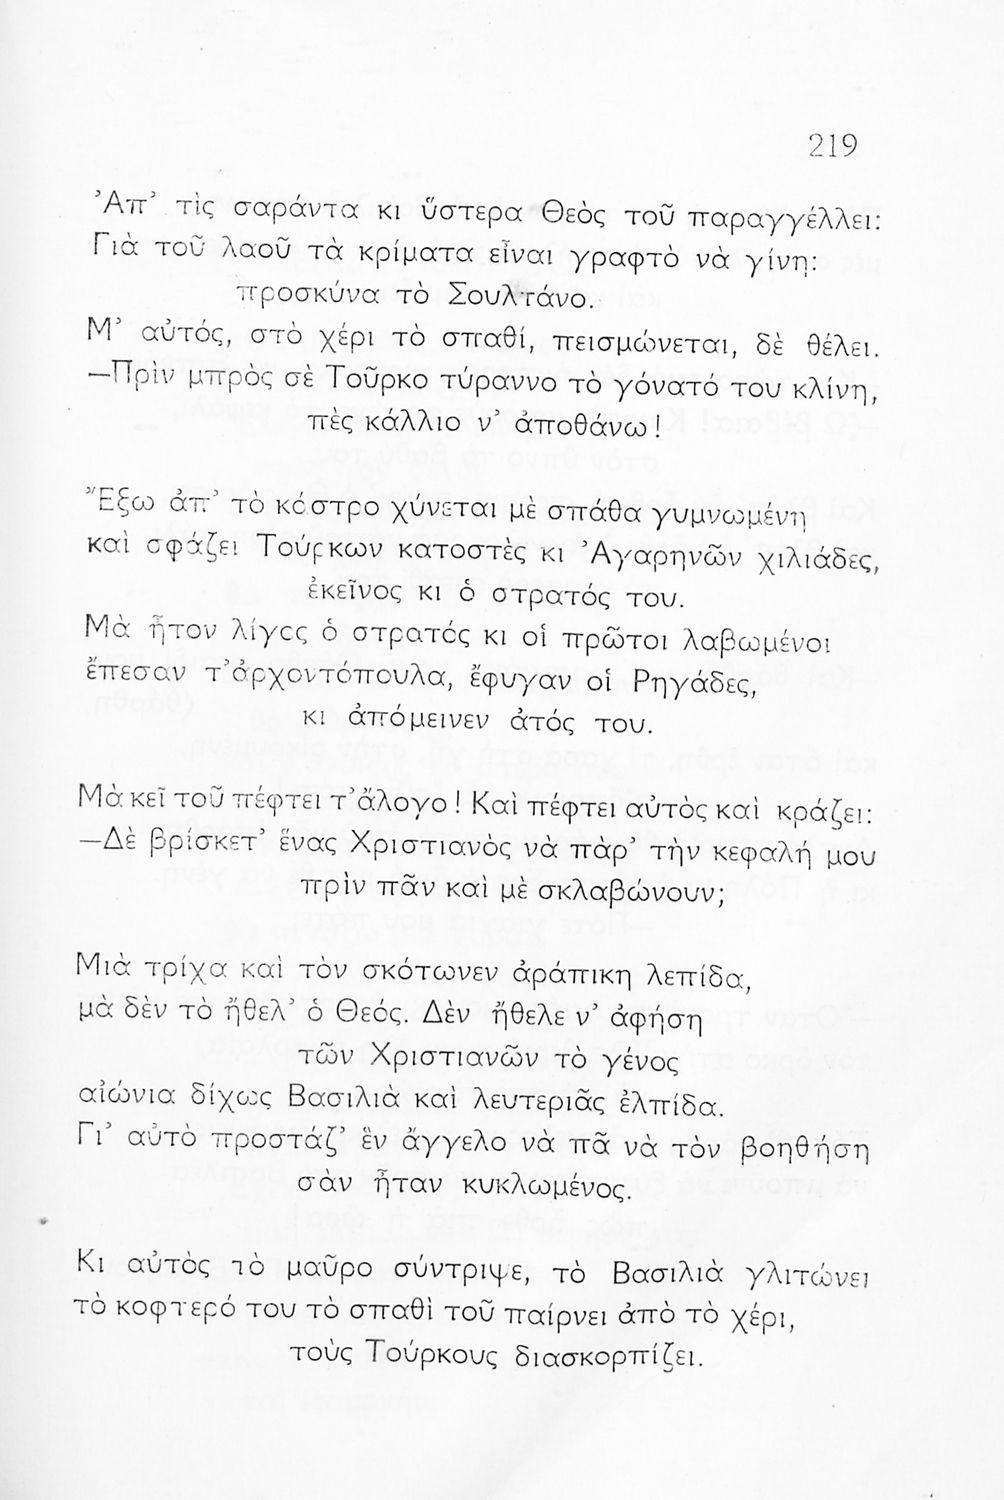 219
Ἀπ’ τὶς σαράντα κι ὕστερα Θεὸς τοῦ παραγγέλλει:
Γιὰ τοῦ λαοῦ τὰ κρίματα εἶναι γραφτὸ νὰ γίνη:
προσκύνα τὸ Σουλτάνο.
Μ’ αὐτός, στὸ χέρι τὸ σπαθί, πεισμώνεται, δὲ θέλει.
—Πρὶν μπρὸς σὲ Τοῦρκο τύραννο τὸ γόνατό του κλίνη,
πὲς κάλλιο ν’ ἀποθάνω!
Ἔξω ἀπ’ τὸ κάστρο χύνεται μὲ σπάθα γυμνωμένη
καὶ σφάζει Τούρκων κατοστὲς κι Ἀγαρηνῶν χιλιάδες,
ἐκεῖνος κι ὁ στρατός του.
Μὰ ἦτον λίγος ὁ στρατός κι οἱ πρῶτοι λαβωμένοι
ἔπεσαν τ’ ἀρχοντόπουλα, ἔφυγαν οἱ Ρηγάδες,
κι ἀπόμεινεν ἀτός του.
Μὰ κεῖ τοῦ πέφτει τ’ ἄλογο! Καὶ πέφτει αὐτὸς καὶ κράζει:
—Δὲ βρίσκετ’ ἕνας Χριστιανὸς νὰ πὰρ’ τὴν κεφαλή μου
πρὶν πᾶν καὶ μὲ σκλαβώνουν;
Μιὰ τρίχα καὶ τὸν σκότωνεν ἀράπικη λεπίδα,
μὰ δὲν τὸ ἤθελ’ ὁ Θεός. Δὲν ἤθελε ν’ ἀφήση
τῶν Χριστιανῶν τὸ γένος
αἰώνια δίχως Βασιλιὰ καὶ λευτεριᾶς ἐλπίδα.
Γι’ αὐτὸ προστάζ’ ἓν ἄγγελο νὰ πᾶ νὰ τὸν βοηθήση
σὰν ἦταν κυκλωμένος.
Κι αὐτὸς τὸ μαῦρο σύντριψε, τὸ Βασιλιὰ γλιτώνει
τὸ κοφτερό του τὸ σπαθὶ τοῦ παίρνει ἀπὸ τὸ χέρι,
τοὺς Τούρκους διασκορπίζει.